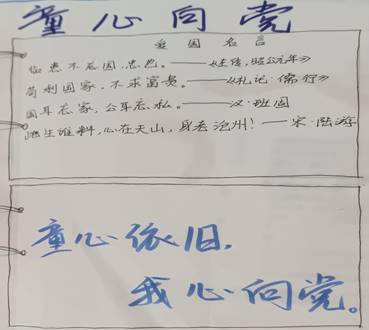 童心向党
爱国名言
临患不忘国,忠也。——《左传·昭公元年》
苟利国家,不求富贵。——《礼记·儒行》
国耳忘家,公耳忘私。——汉·班固
此生谁料,心在天山,身老沧州!——宋·陆游
童心依旧,
我心向党。